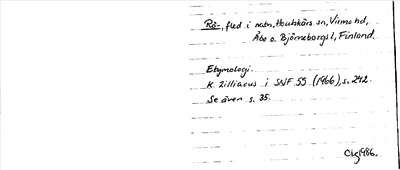 Rå-, fled i nasn, Houtskärs sn, Virmo hd,
Åbo o. Björneborgs l, Finland.
Etymologi.
K. Zilliacus i SNF 55 (1966), s. 242.
Se även s. 35.
1986.